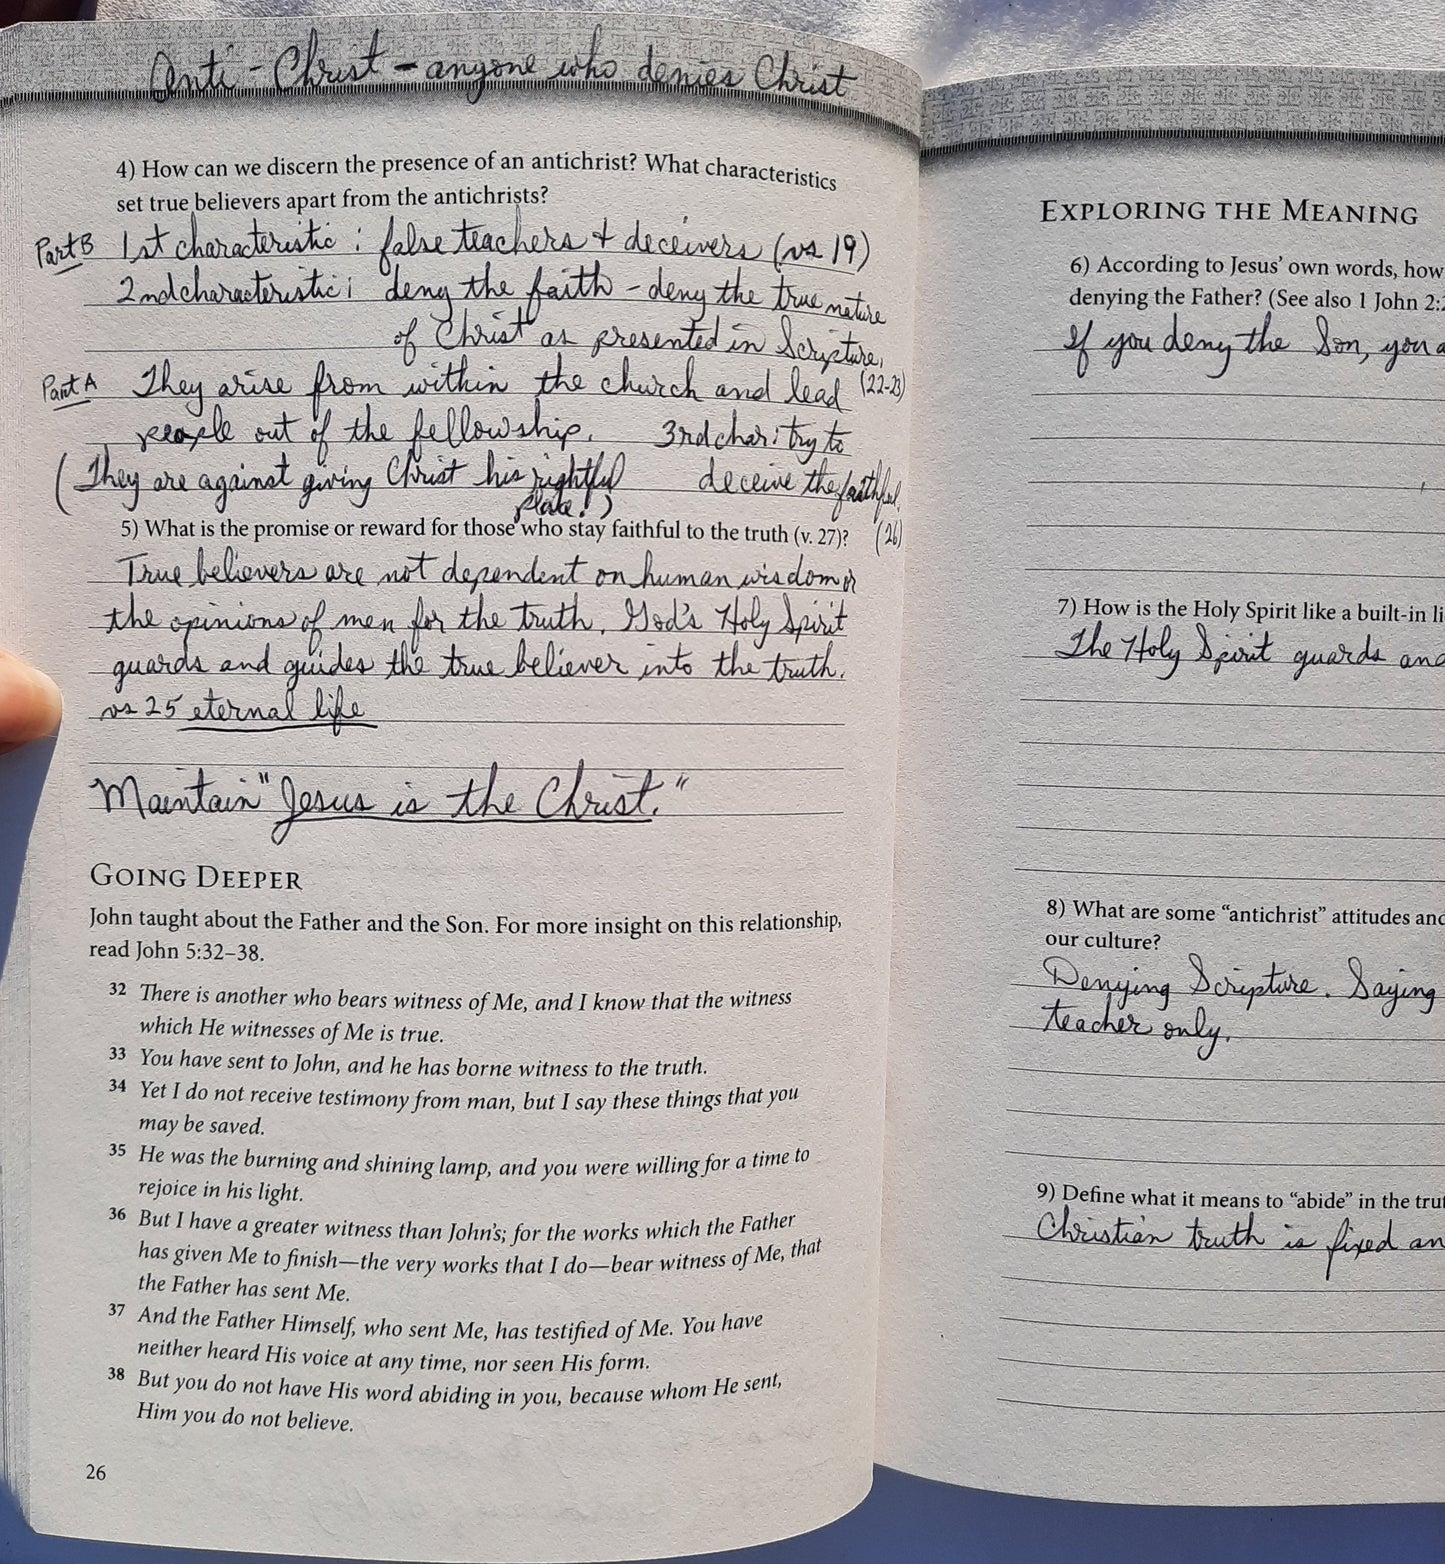 Anti-Christ - anyone who denies Christ
4) How can we discern the presence of an antichrist? What characteristics
set true believers apart from the antichrists?
Part B 1st characteristic: false teachers + deceivers (vs 19)
2nd characteristic: deny the faith - deny the true nature
of Christ as presented in Scripture.
Part A They arise from within the church and lead (22-23)
people out of the fellowship. 3rd char: try to
(They are against giving Christ his rightful deceive the faithful.
place!)
5) What is the promise or reward for those who stay faithful to the truth (v. 27)? (26)
True believers are not dependent on human wisdom or
the opinions of men for the truth. God's Holy Spirit
guards and guides the true believer into the truth.
vs 25 eternal life
Maintain "Jesus is the Christ."
GOING DEEPER
John taught about the Father and the Son. For more insight on this relationship,
read John 5:32–38.
32 There is another who bears witness of Me, and I know that the witness
which He witnesses of Me is true.
33 You have sent to John, and he has borne witness to the truth.
34 Yet I do not receive testimony from man, but I say these things that you
may be saved.
35 He was the burning and shining lamp, and you were willing for a time to
rejoice in his light.
36 But I have a greater witness than John's; for the works which the Father
has given Me to finish—the very works that I do—bear witness of Me, that
the Father has sent Me.
37 And the Father Himself, who sent Me, has testified of Me. You have
neither heard His voice at any time, nor seen His form.
38 But you do not have His word abiding in you, because whom He sent,
Him you do not believe.
26
EXPLORING THE MEANING
6) According to Jesus' own words, how
denying the Father? (See also 1 John 2:2
If you deny the Son, you a
7) How is the Holy Spirit like a built-in li
The Holy Spirit guards and
8) What are some "antichrist" attitudes and
our culture?
Denying Scripture. Saying
teacher only.
9) Define what it means to "abide" in the tru
Christian truth is fixed an